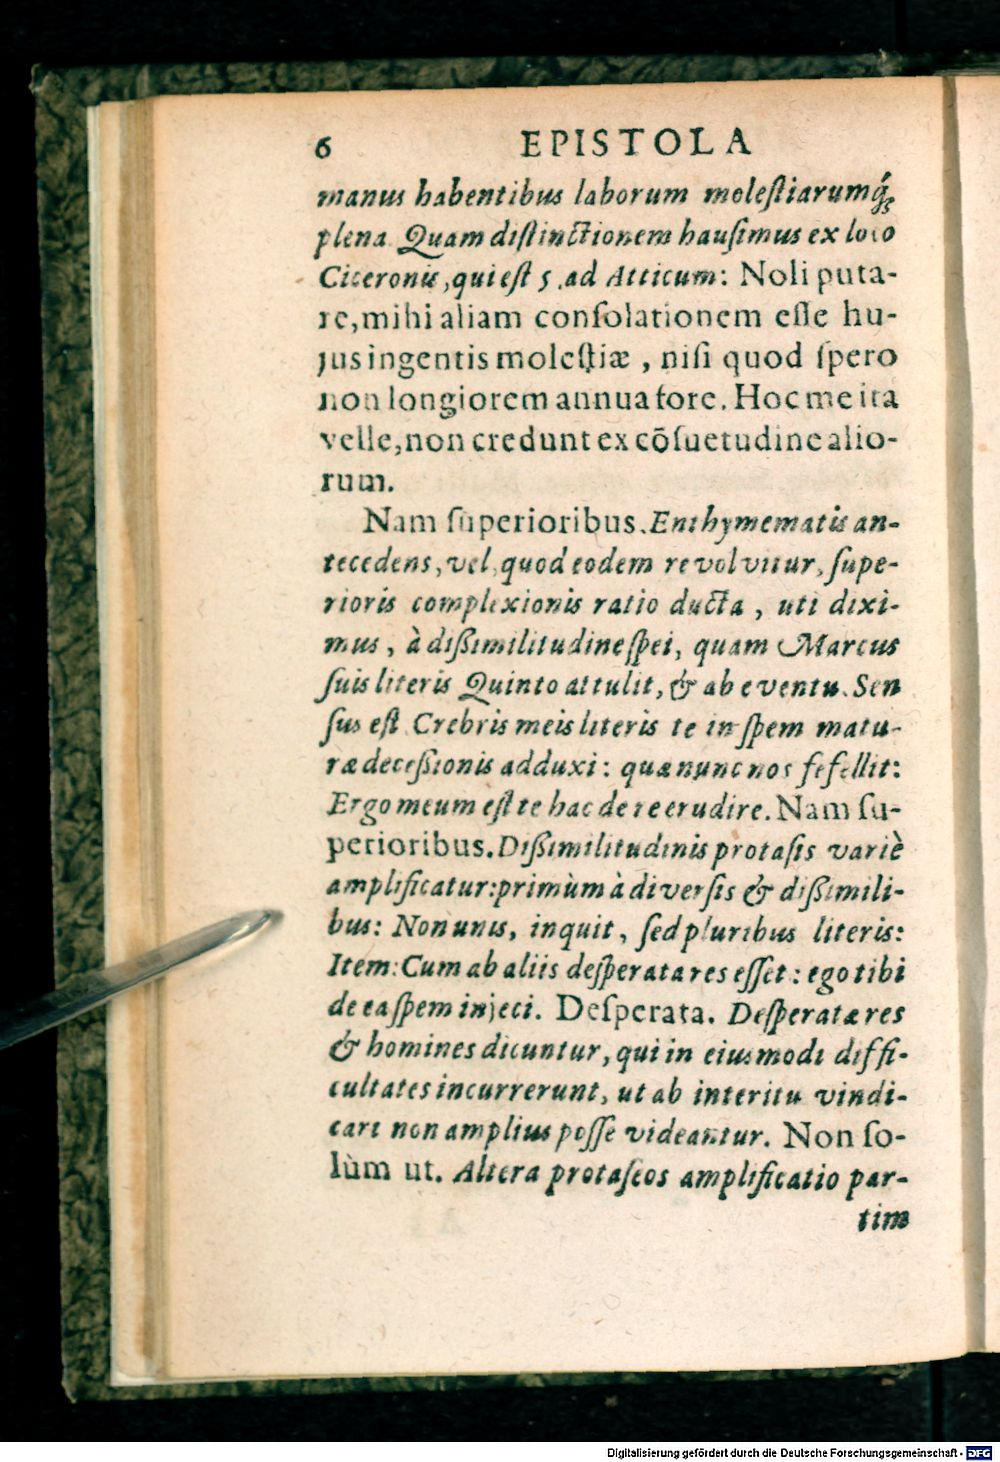 6 EPISTOLA
manus habentibus laborum molestiarumq́;
plena. Quam distinctionem hausimus ex loco
Ciceronis, qui est 5. ad Atticum: Noli puta-
re, mihi aliam consolationem esse hu-
jus ingentis molestiæ, nisi quod spero
non longiorem annua fore. Hoc me ita
velle, non credunt ex cōsuetudine alio-
rum.
Nam superioribus. Enthymematis an-
tecedens, vel, quod eodem revolvitur, supe-
rioris complexionis ratio ducta, uti dixi-
mus, à dissimilitudine spei, quam Marcus
suis literis Quinto attulit, & ab eventu. Sen
sus est Crebris meis literis te in spem matu-
ræ decessionis adduxi: quæ nunc nos fefellit:
Ergo meum est te hac de re erudire. Nam su-
perioribus. Dissimilitudinis protasis variè
amplificatur: primùm à diversis & dissimili-
bus: Non unis, inquit, sed pluribus literis:
Item: Cum ab aliis desperata res esset: ego tibi
de ea spem injeci. Desperata. Desperatæ res
& homines dicuntur, qui in eiusmodi diffi-
cultates incurrerunt, ut ab interitu vindi-
cari non amplius posse videantur. Non so-
lùm ut. Altera protaseos amplificatio par-
tim
Digitalisierung gefördert durch die Deutsche Forschungsgemeinschaft - DFG